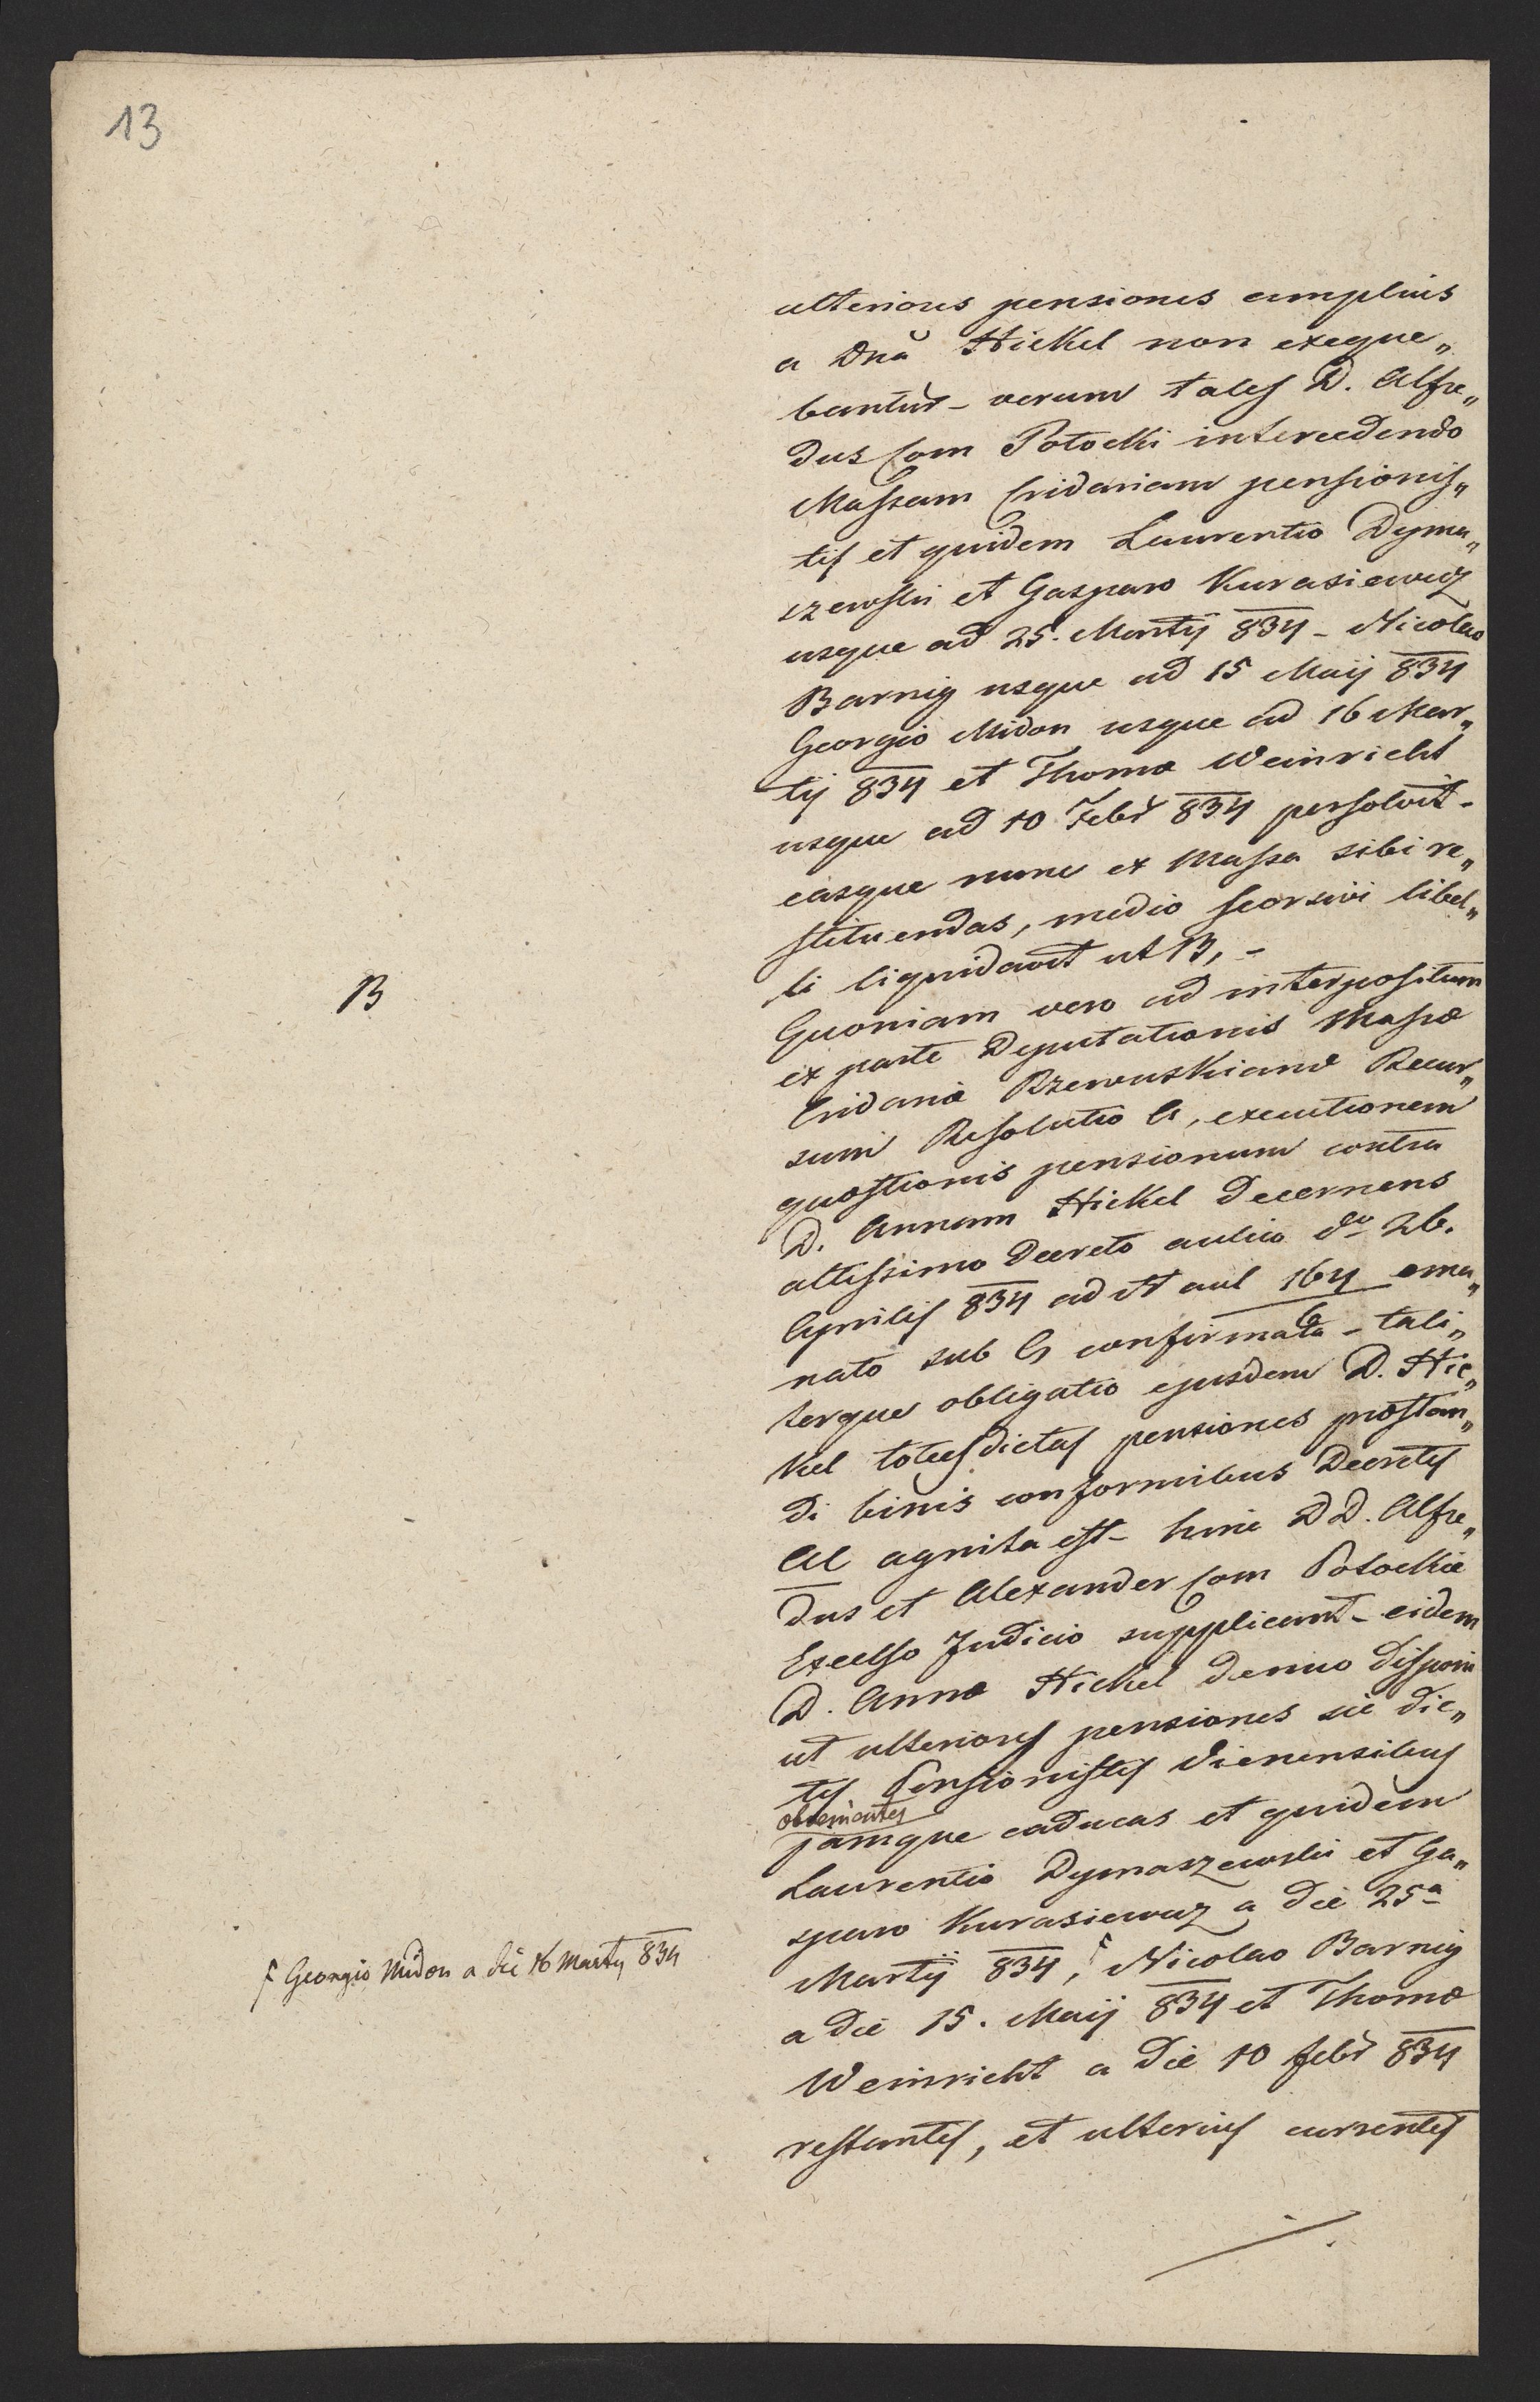 13
ulteriores pensiones amplius
a Dnă Hickel non exeque„
bantur – verum tales D. Alfre„
dus Com Potocki intercedendo
Massam Cridariam pensionis„
tis et quidem Laurentio Dyma„
szewski et Gasparo Kurasiewicz
usque ad 25. Martij 834 – Nicolao
Barnig usque ad 15 Maij 834
Georgio Midon usque ad 16 Mar„
tij 834 et Thomæ Weinricht
usque ad 10 Febr 834 persolvit –
easque nunc ex Massa sibi re„
stituendas, medio seorsivi libel„
li liquidavit ut B, –
B
Quoniam vero ad interpositum
ex parte Deputationis Massæ
Cridariæ Rzewuskianæ Recur„
sum Resolutio A, executionem
quæstionis pensionum contra
D. Annam Hickel decernens
altissimo Decreto aulico dto 26.
Aprilis 834 ad N aul 164/6 ema„
nato sub confirmata – tali„
terque obligatio ejusdem D. Hic„
kel totiesdictas pensiones præstan„
di binis conformibus Decretis
agnita est – hinc DD. Alfre„
dus et Alexander Com Potockie
Excelso Judicio supplicant – eidem
D. Annæ Hickel denuo disponi
ut ulteriores pensiones sic dic„
tis Pensionistis Vienensibus
obvenientes
jamque caducas et quidem
Laurentio Dymaszewski et Ga„
sparo Kurasiewicz a die 25ª
Martij 834, ꜰ Nicolao Barnig
ꜰ Georgio Midon a die 16 Martij 834
a die 15. Maij 834 et Thomæ
Weinricht a die 10 febr 834
restantes, et ulterius currentes
./.